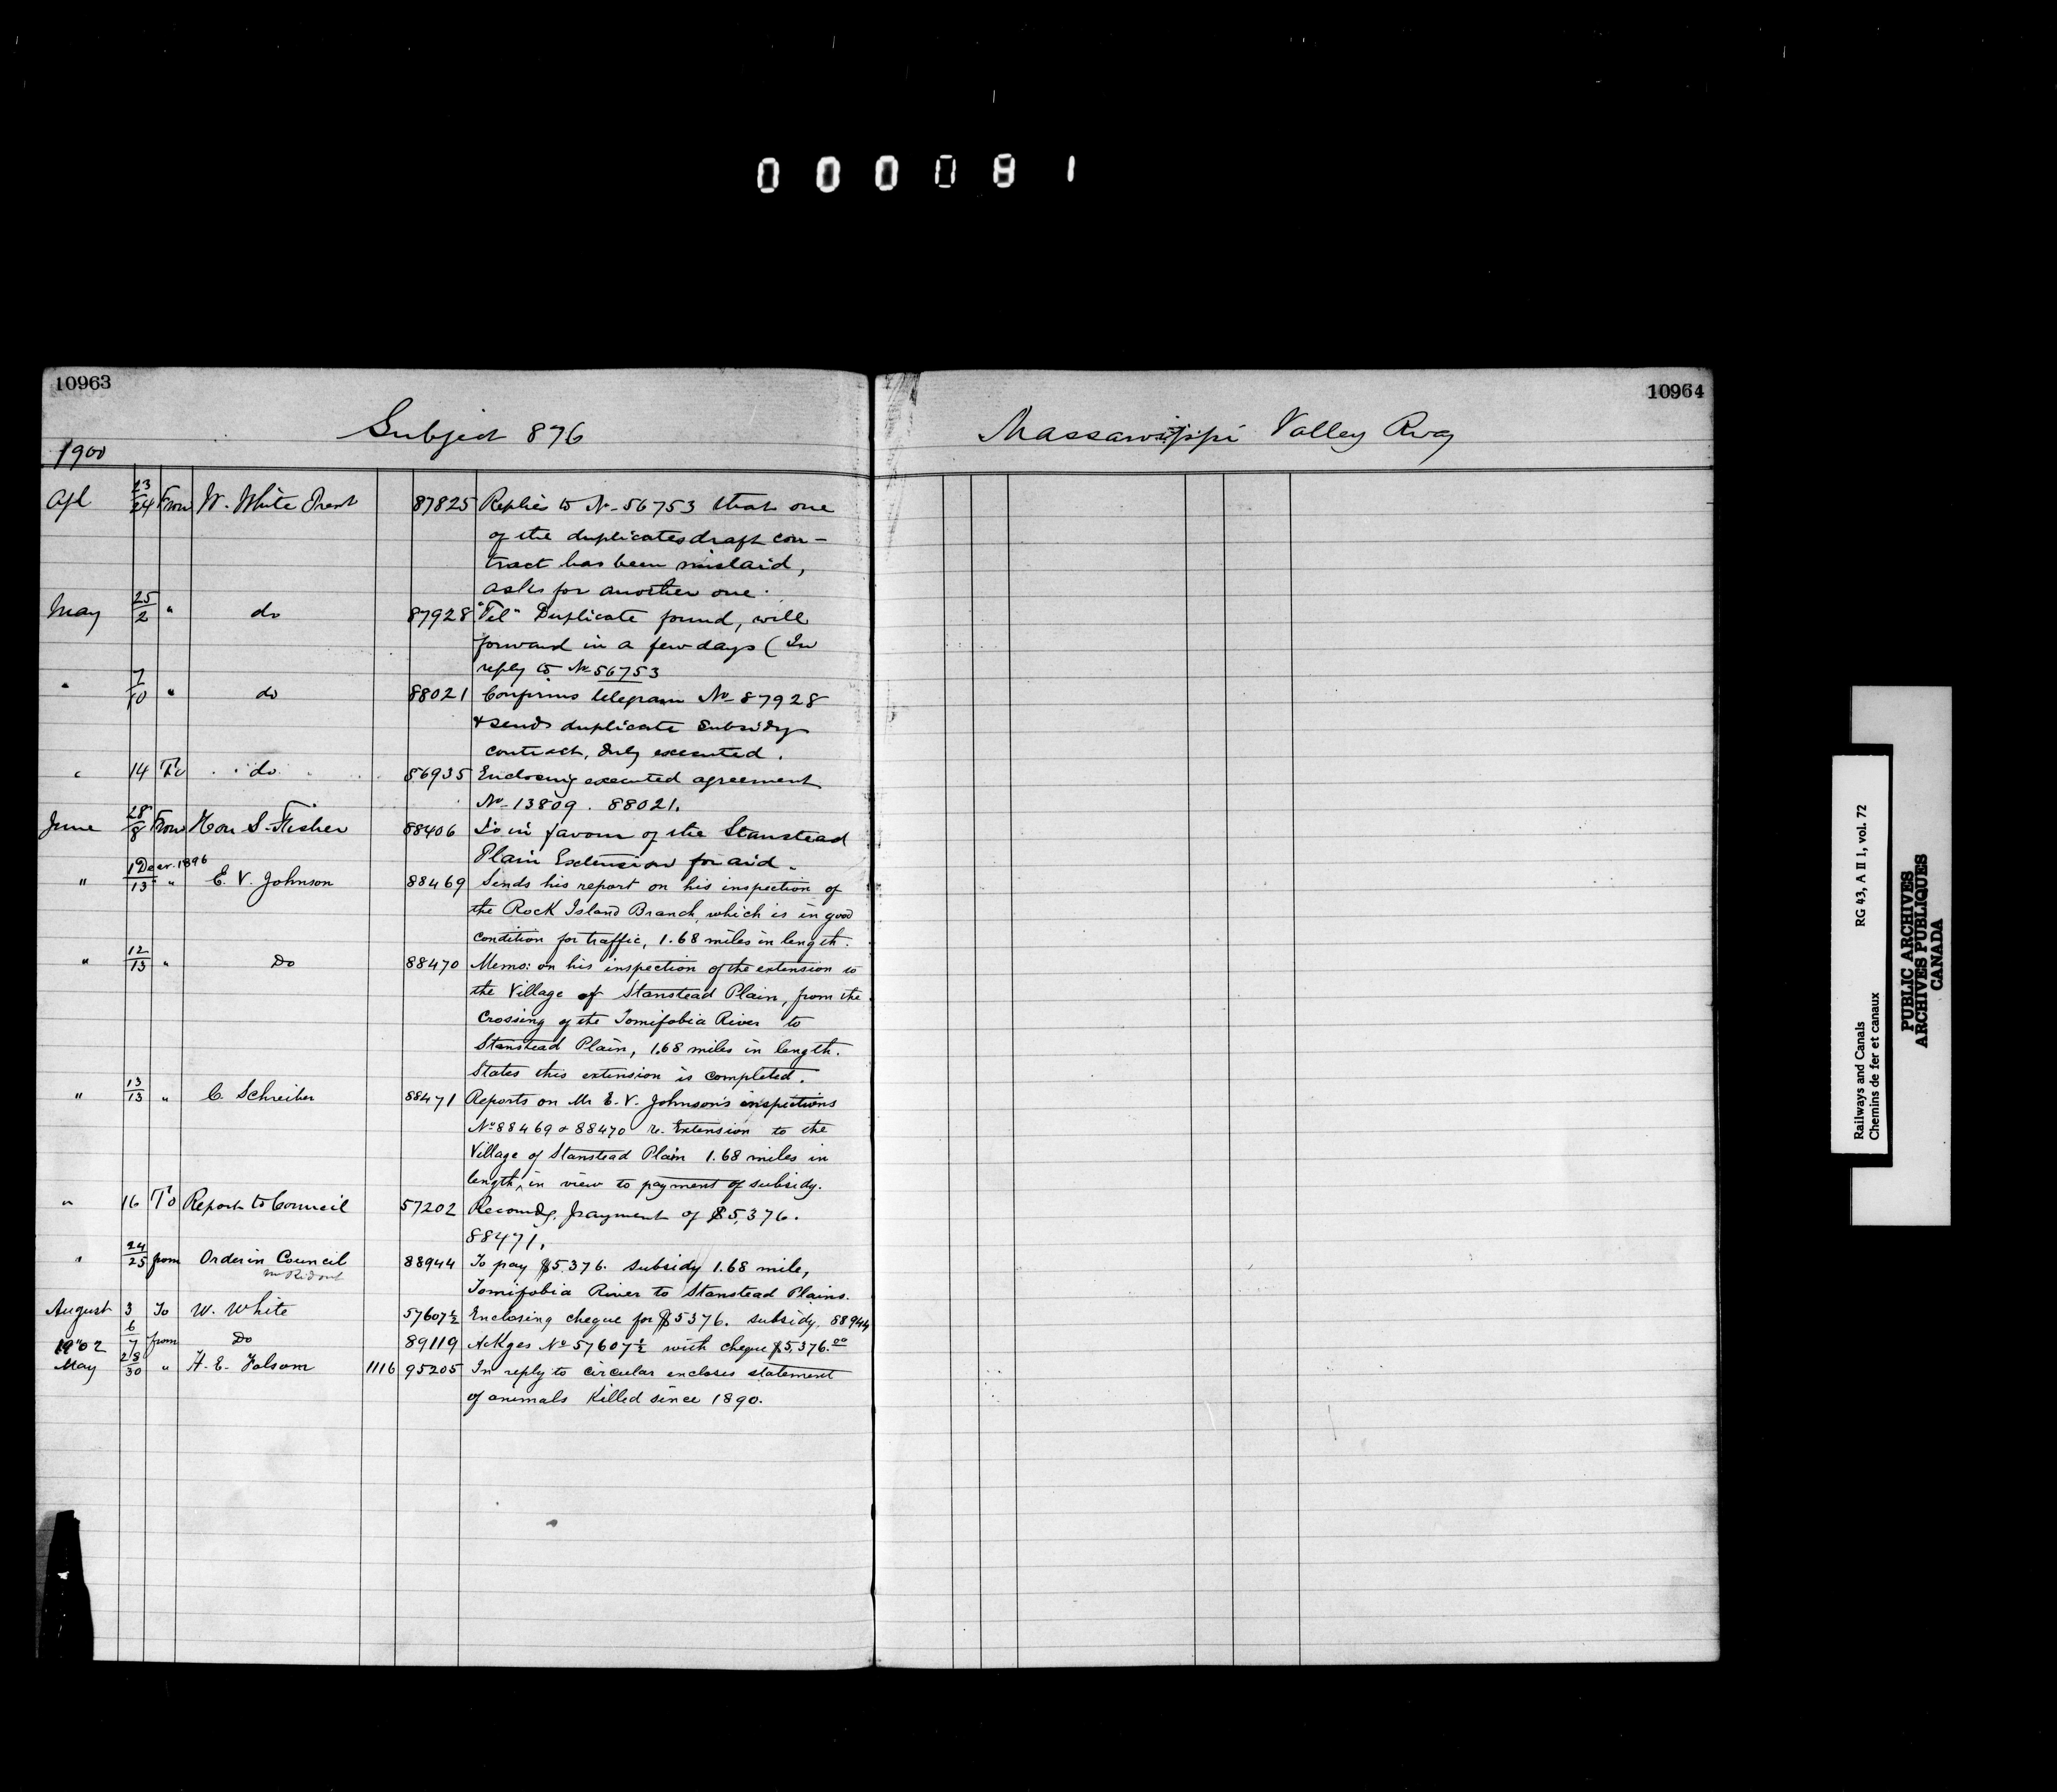 000081
10963
Subject 876
1900
Apl 23/24 From W. White Prest 87825 Replies to No 56753 that one
of the duplicates draft con-
tract has been mislaid,
asks for another one.
May 25/2 " do 87928 "Tel" Duplicate found, will
forward in a few days (In
reply to No 56753
" 7/10 " do 88021 Confirms telegram No 87928
& sends duplicate Subsidy
contract, duly executed.
" 14 To do 86935 Enclosing executed agreement
No 13809. 88021.
June 28/8 From Hon S. Fisher 88406 Is in favour of the Stanstead
Plain Extension for aid.
" 1 Decr. 1896/13 " E. V. Johnson 88469 Sends his report on his inspection of
the Rock Island Branch, which is in good
condition for traffic, 1.68 miles in length.
" 12/13 " Do 88470 Memo: on his inspection of the extension to
the Village of Stanstead Plain, from the
Crossing of the Tomifobia River to
Stanstead Plain, 1.68 miles in length.
States this extension is completed.
" 13/13 " C. Schreiber 88471 Reports on Mr E. V. Johnson's inspections
No 88469 & 88470 re. Extension to the
Village of Stanstead Plain 1.68 miles in
length, in view to payment of subsidy.
" 16 To Report to Council 57202 Recomdg. payment of $5,376.
88471.
" 24/25 from Order in Council 88944 To pay $5,376. subsidy 1.68 mile,
Mr Ridout
Tomifobia River to Stanstead Plains.
August 3 To W. White 57607½ Enclosing cheque for $5376. subsidy. 88944
6/7 from Do 89119 Ackges No 57607½ with cheque $5,376.00
1902
May 28/30 " H. E. Folsom 1116 95205 In reply to circular encloses statement
of animals killed since 1890.
10964
Massawippi Valley Rway
Railways and Canals RG 43, A II 1, vol. 72
Chemins de fer et canaux
PUBLIC ARCHIVES
ARCHIVES PUBLIQUES
CANADA